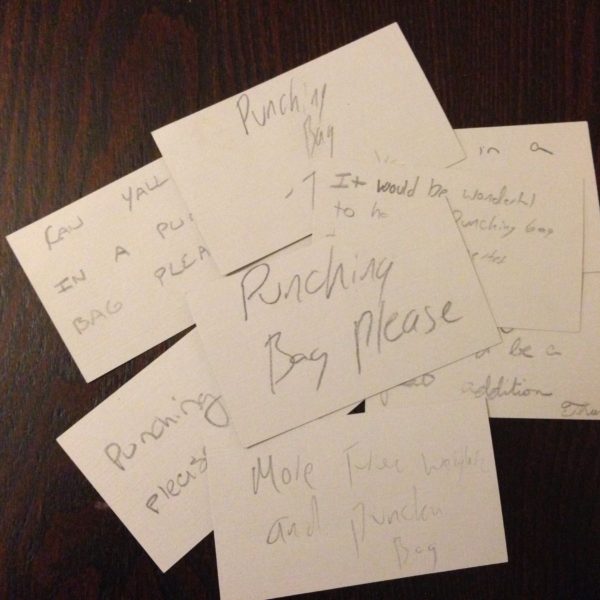 Punching
Bag
CAN YALL
IN A PU
BAG PLEA
in a
It would be wonderful
to ha Punching bag
Punching
Bag please
be a
addition
Punching
please
More Free Weights
and Punchin
Bag